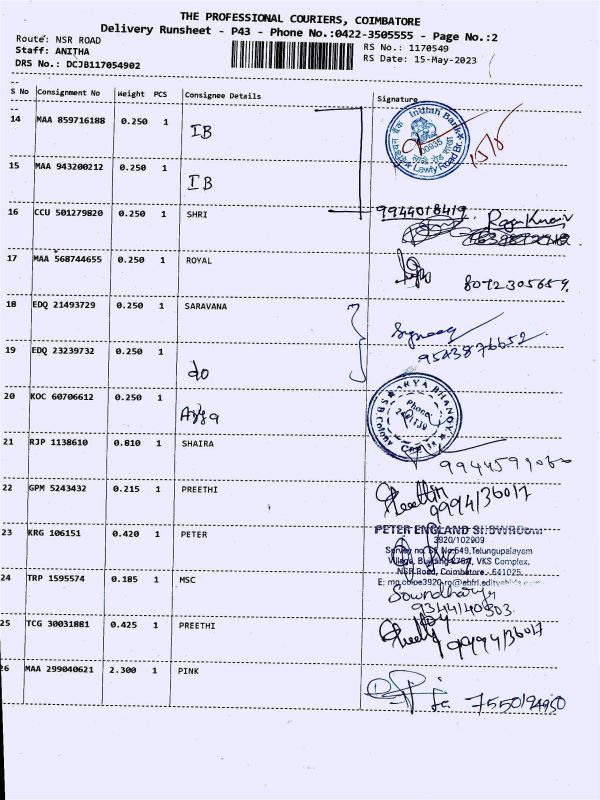 THE PROFESSIONAL COURIERS, COIMBATORE
Delivery Runsheet - P43 - Phone No.:0422-3505555 - Page No.:2
Route: NSR ROAD
RS No.: 1170549
Staff: ANITHA
RS Date: 15-May-2023
DRS No.: DCJB117054902
S No Consignment No Weight PCS Consignee Details Signature
14 MAA 859716188 0.250 1 IB
Indian Bank
Lawly Road Br.
15/5
15 MAA 943200212 0.250 1 IB
16 CCU 501279820 0.250 1 SHRI 9944018419
17 MAA 568744655 0.250 1 ROYAL 8072305659
18 EDQ 21493729 0.250 1 SARAVANA
9543876652
19 EDQ 23239732 0.250 1 do
20 KOC 60706612 0.250 1
ARYA BHAVAN
Phone
21 RJP 1138610 0.810 1 SHAIRA
22 GPM 5243432 0.215 1 PREETHI
9994136017
23 KRG 106151 0.420 1 PETER
PETER ENGLAND SHOWROOM
3920/102909
Survey no. 649,Telungupalayom
Village, Building VKS Complex,
NSR Road, Coimbatore - 641025.
24 TRP 1595574 0.185 1 MSC
Soundharya
9344140303
25 TCG 30031881 0.425 1 PREETHI
9994136017
26 MAA 299040621 2.300 1 PINK
7550194950